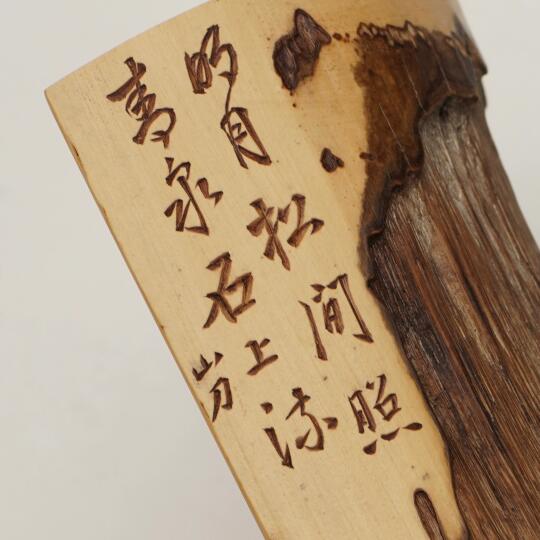 明月松间照
青泉石上流